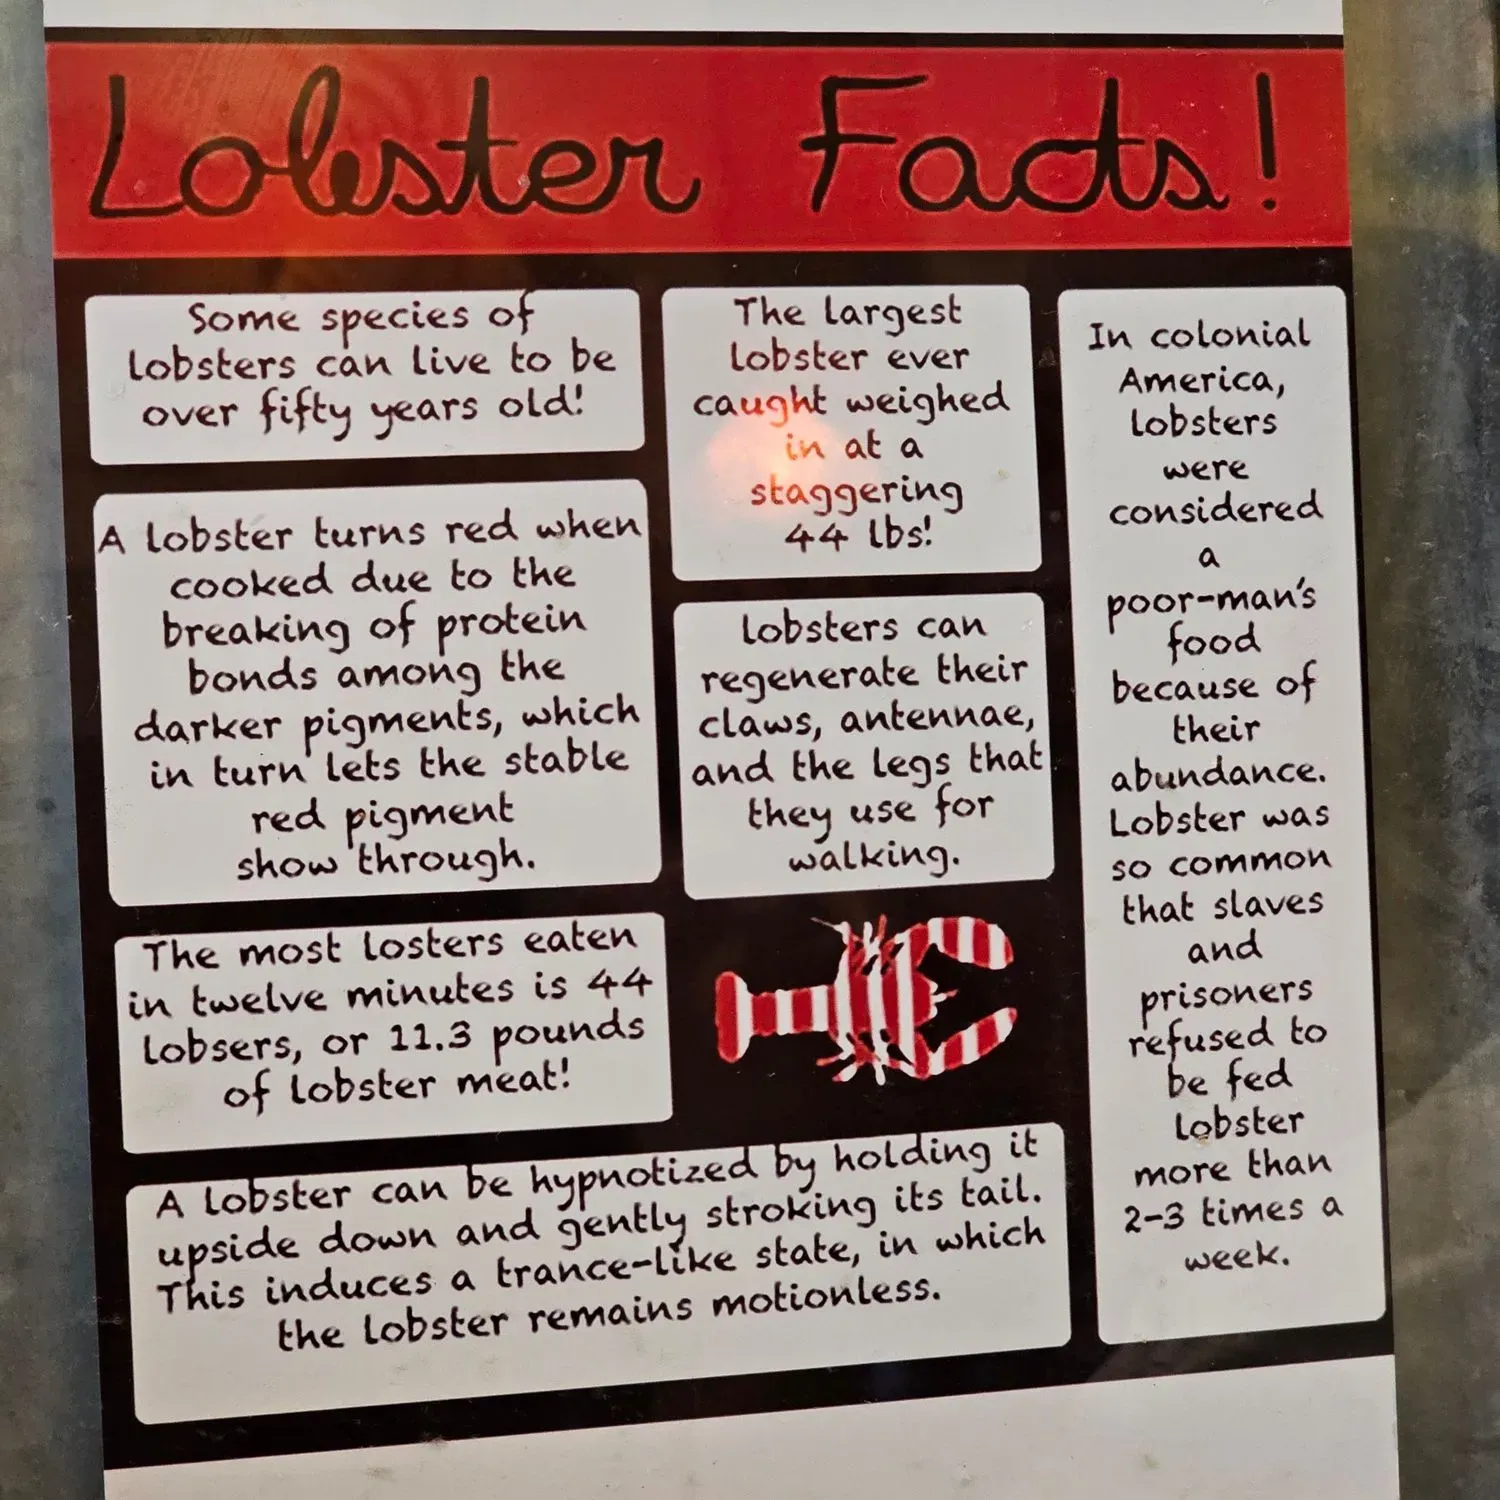 Lobster Facts!
Some species of
lobsters can live to be
over fifty years old!
A lobster turns red when
cooked due to the
breaking of protein
bonds among the
darker pigments, which
in turn lets the stable
red pigment
show through.
The most losters eaten
in twelve minutes is 44
lobsers, or 11.3 pounds
of lobster meat!
The largest
lobster ever
caught weighed
in at a
staggering
44 lbs!
Lobsters can
regenerate their
claws, antennae,
and the legs that
they use for
walking.
A lobster can be hypnotized by holding it
upside down and gently stroking its tail.
This induces a trance-like state, in which
the lobster remains motionless.
In colonial
America,
lobsters
were
considered
a
poor-man's
food
because of
their
abundance.
Lobster was
so common
that slaves
and
prisoners
refused to
be fed
lobster
more than
2-3 times a
week.